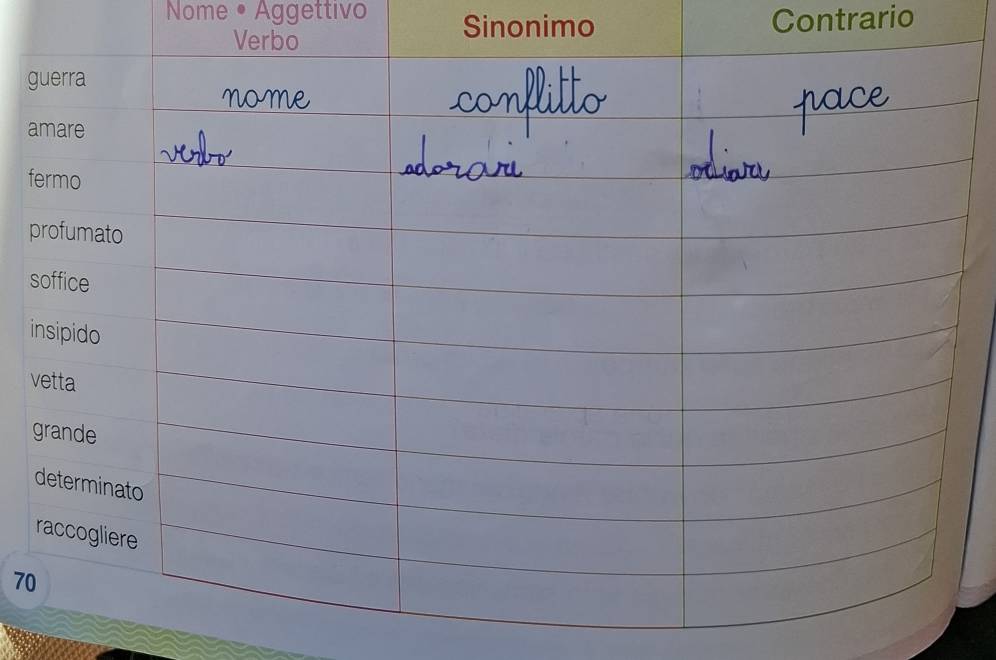 Nome • Aggettivo
Verbo
Sinonimo
Contrario
guerra
nome
conflitto
pace
amare
verbo
adorari
odiare
fermo
profumato
soffice
insipido
vetta
grande
determinato
raccogliere
70